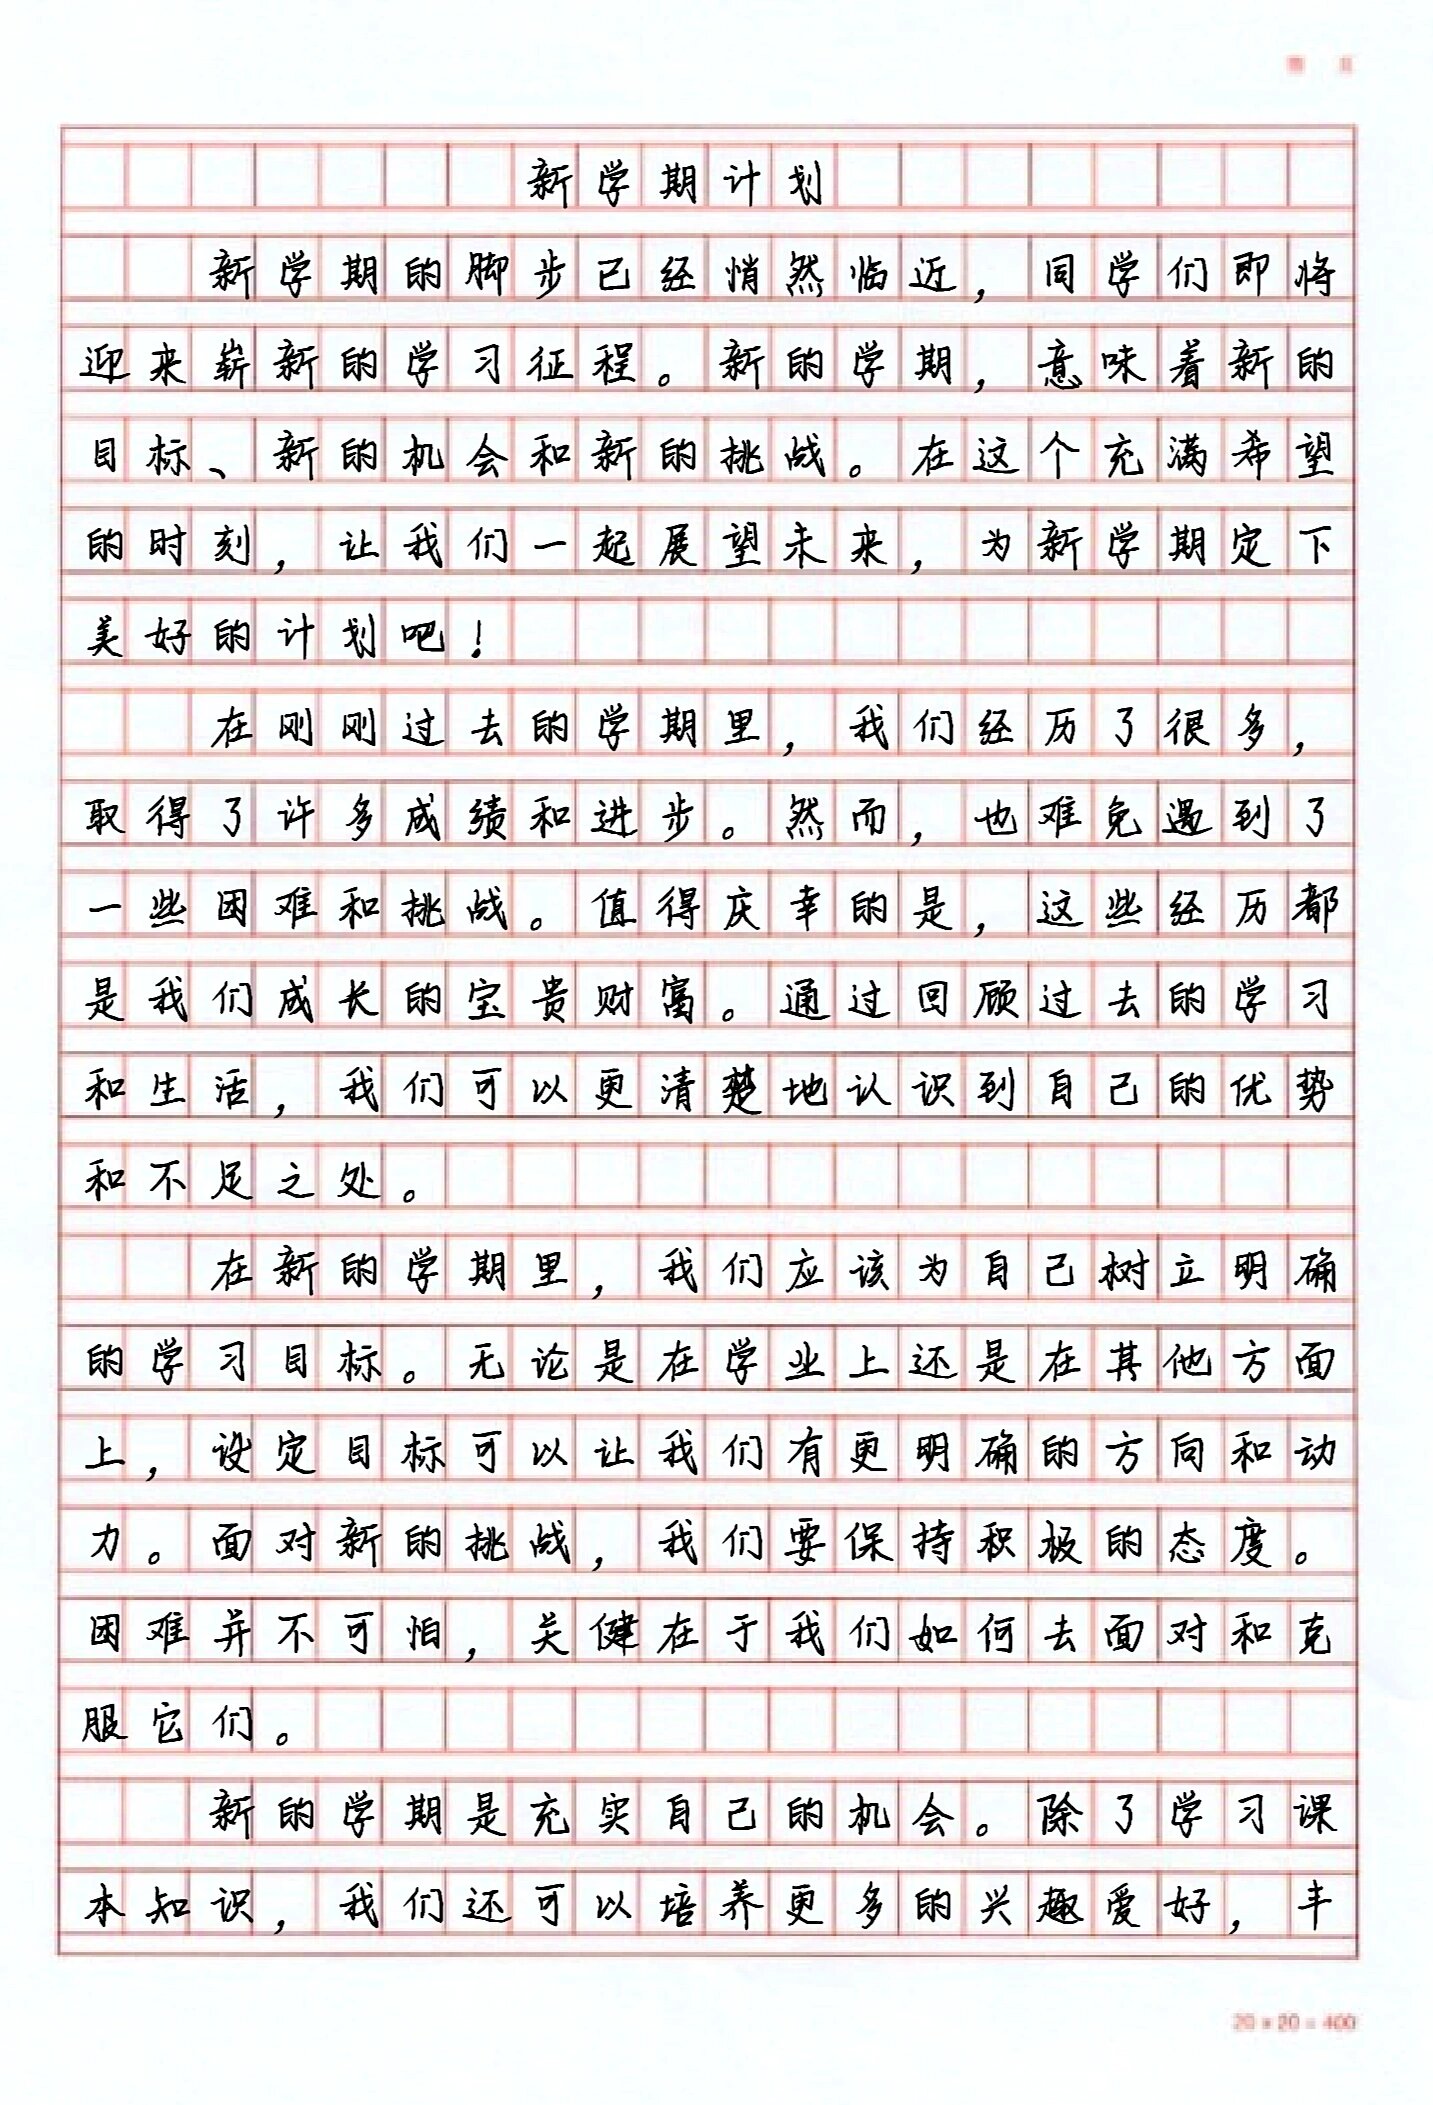 新学期计划
新学期的脚步已经悄然临近，同学们即将
迎来崭新的学习征程。新的学期，意味着新的
目标、新的机会和新的挑战。在这个充满希望
的时刻，让我们一起展望未来，为新学期定下
美好的计划吧！
在刚刚过去的学期里，我们经历了很多，
取得了许多成绩和进步。然而，也难免遇到了
一些困难和挑战。值得庆幸的是，这些经历都
是我们成长的宝贵财富。通过回顾过去的学习
和生活，我们可以更清楚地认识到自己的优势
和不足之处。
在新的学期里，我们应该为自己树立明确
的学习目标。无论是在学业上还是在其他方面
上，设定目标可以让我们有更明确的方向和动
力。面对新的挑战，我们要保持积极的态度。
困难并不可怕，关健在于我们如何去面对和克
服它们。
新的学期是充实自己的机会。除了学习课
本知识，我们还可以培养更多的兴趣爱好，丰
20×20=400